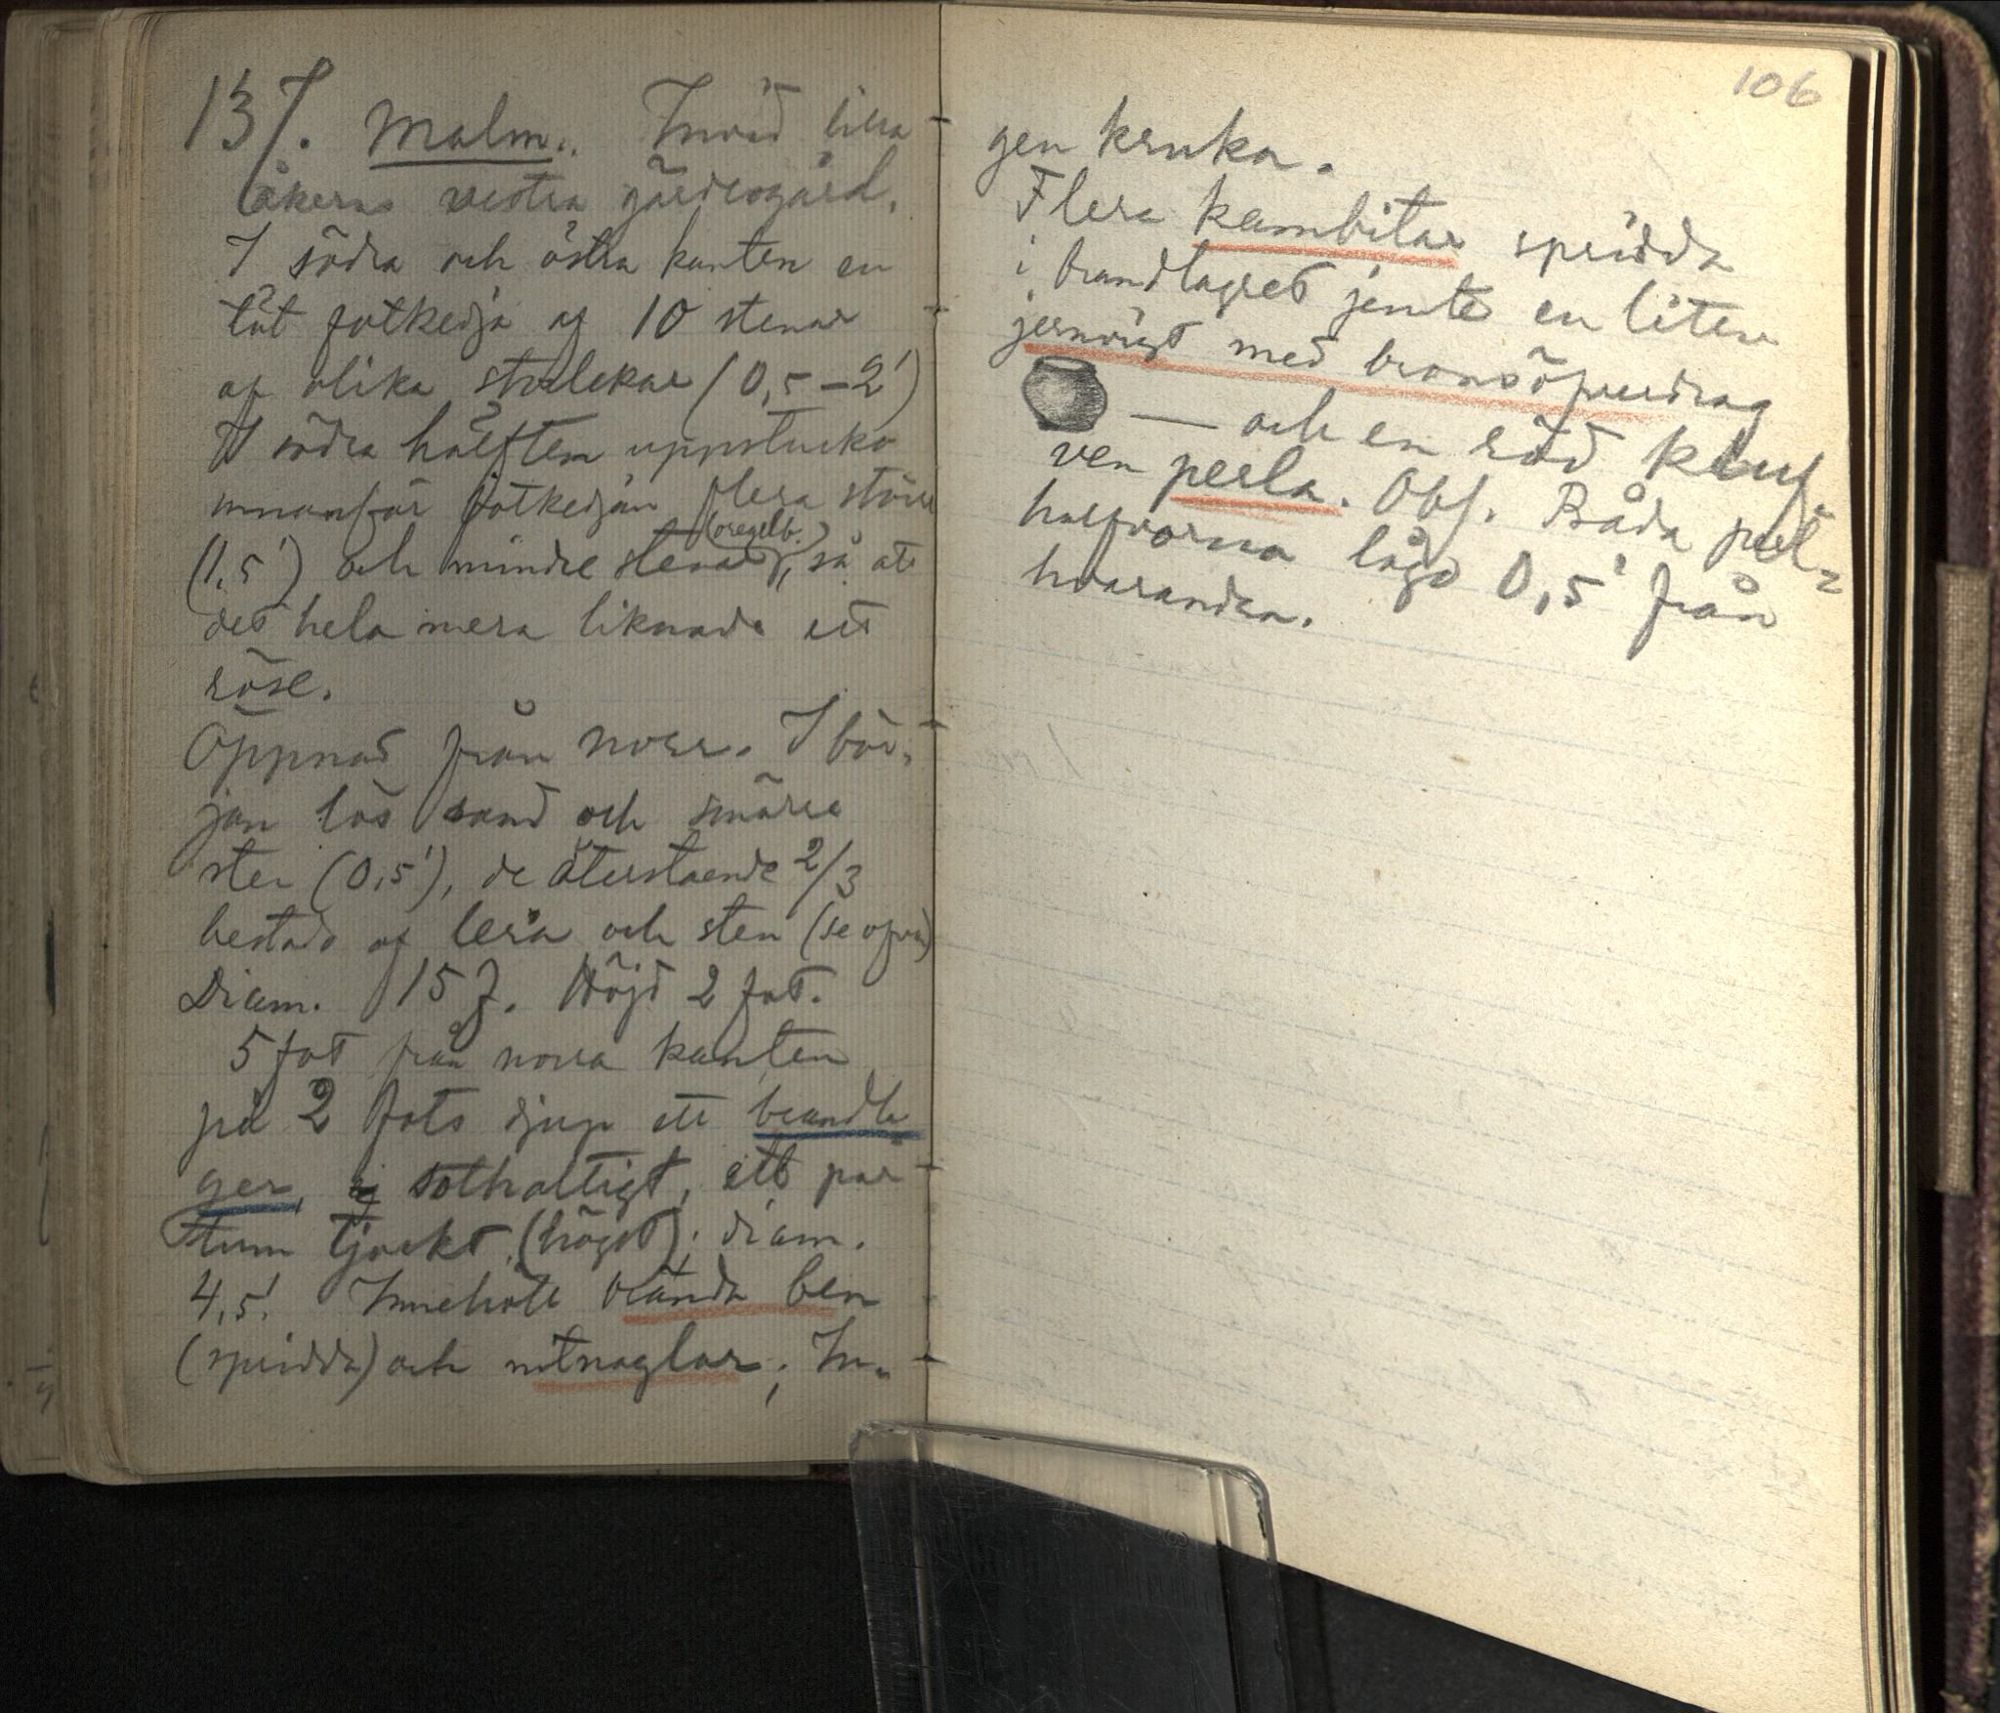 137. Malm. Invid lilla
åkerns vestra gärdesgård.
I södra och östra kanten en
tät fotkedja af 10 stenar
af olika storlekar (0,5-2')
I södra hälften uppstucko
innanför fotkedjan flera större
(oregelb.)
(1,5') och mindre stenar, så at
det hela mera liknade ett
röse.
Öppnad från norr. I bör-
jan lös sand och smärre
sten (0,5'), de återstående 2/3
bestodo af lera och sten (se ofvan)
Diam. 15 f. Höjd 2 fot.
5 fot från norra kanten
på 2 fots djup ett brandla
ger, ej sothaltigt, ett par
tum tjockt (högst); diam.
4,5'. Innehöll brända ben
(spridda) och nitnaglar; In-
106
gen kruka.
Flera kambitar spridda
i brandlagret jemte en liten
jernvigt med bronsöfverdrag
— och en röd kluf
ven perla. Obs. Båda perl-
halfvorna lågo 0,5' från
hvarandra.